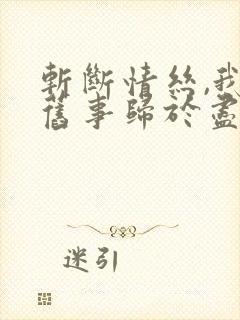 斬斷情絲,我
舊事歸於盡
迷引